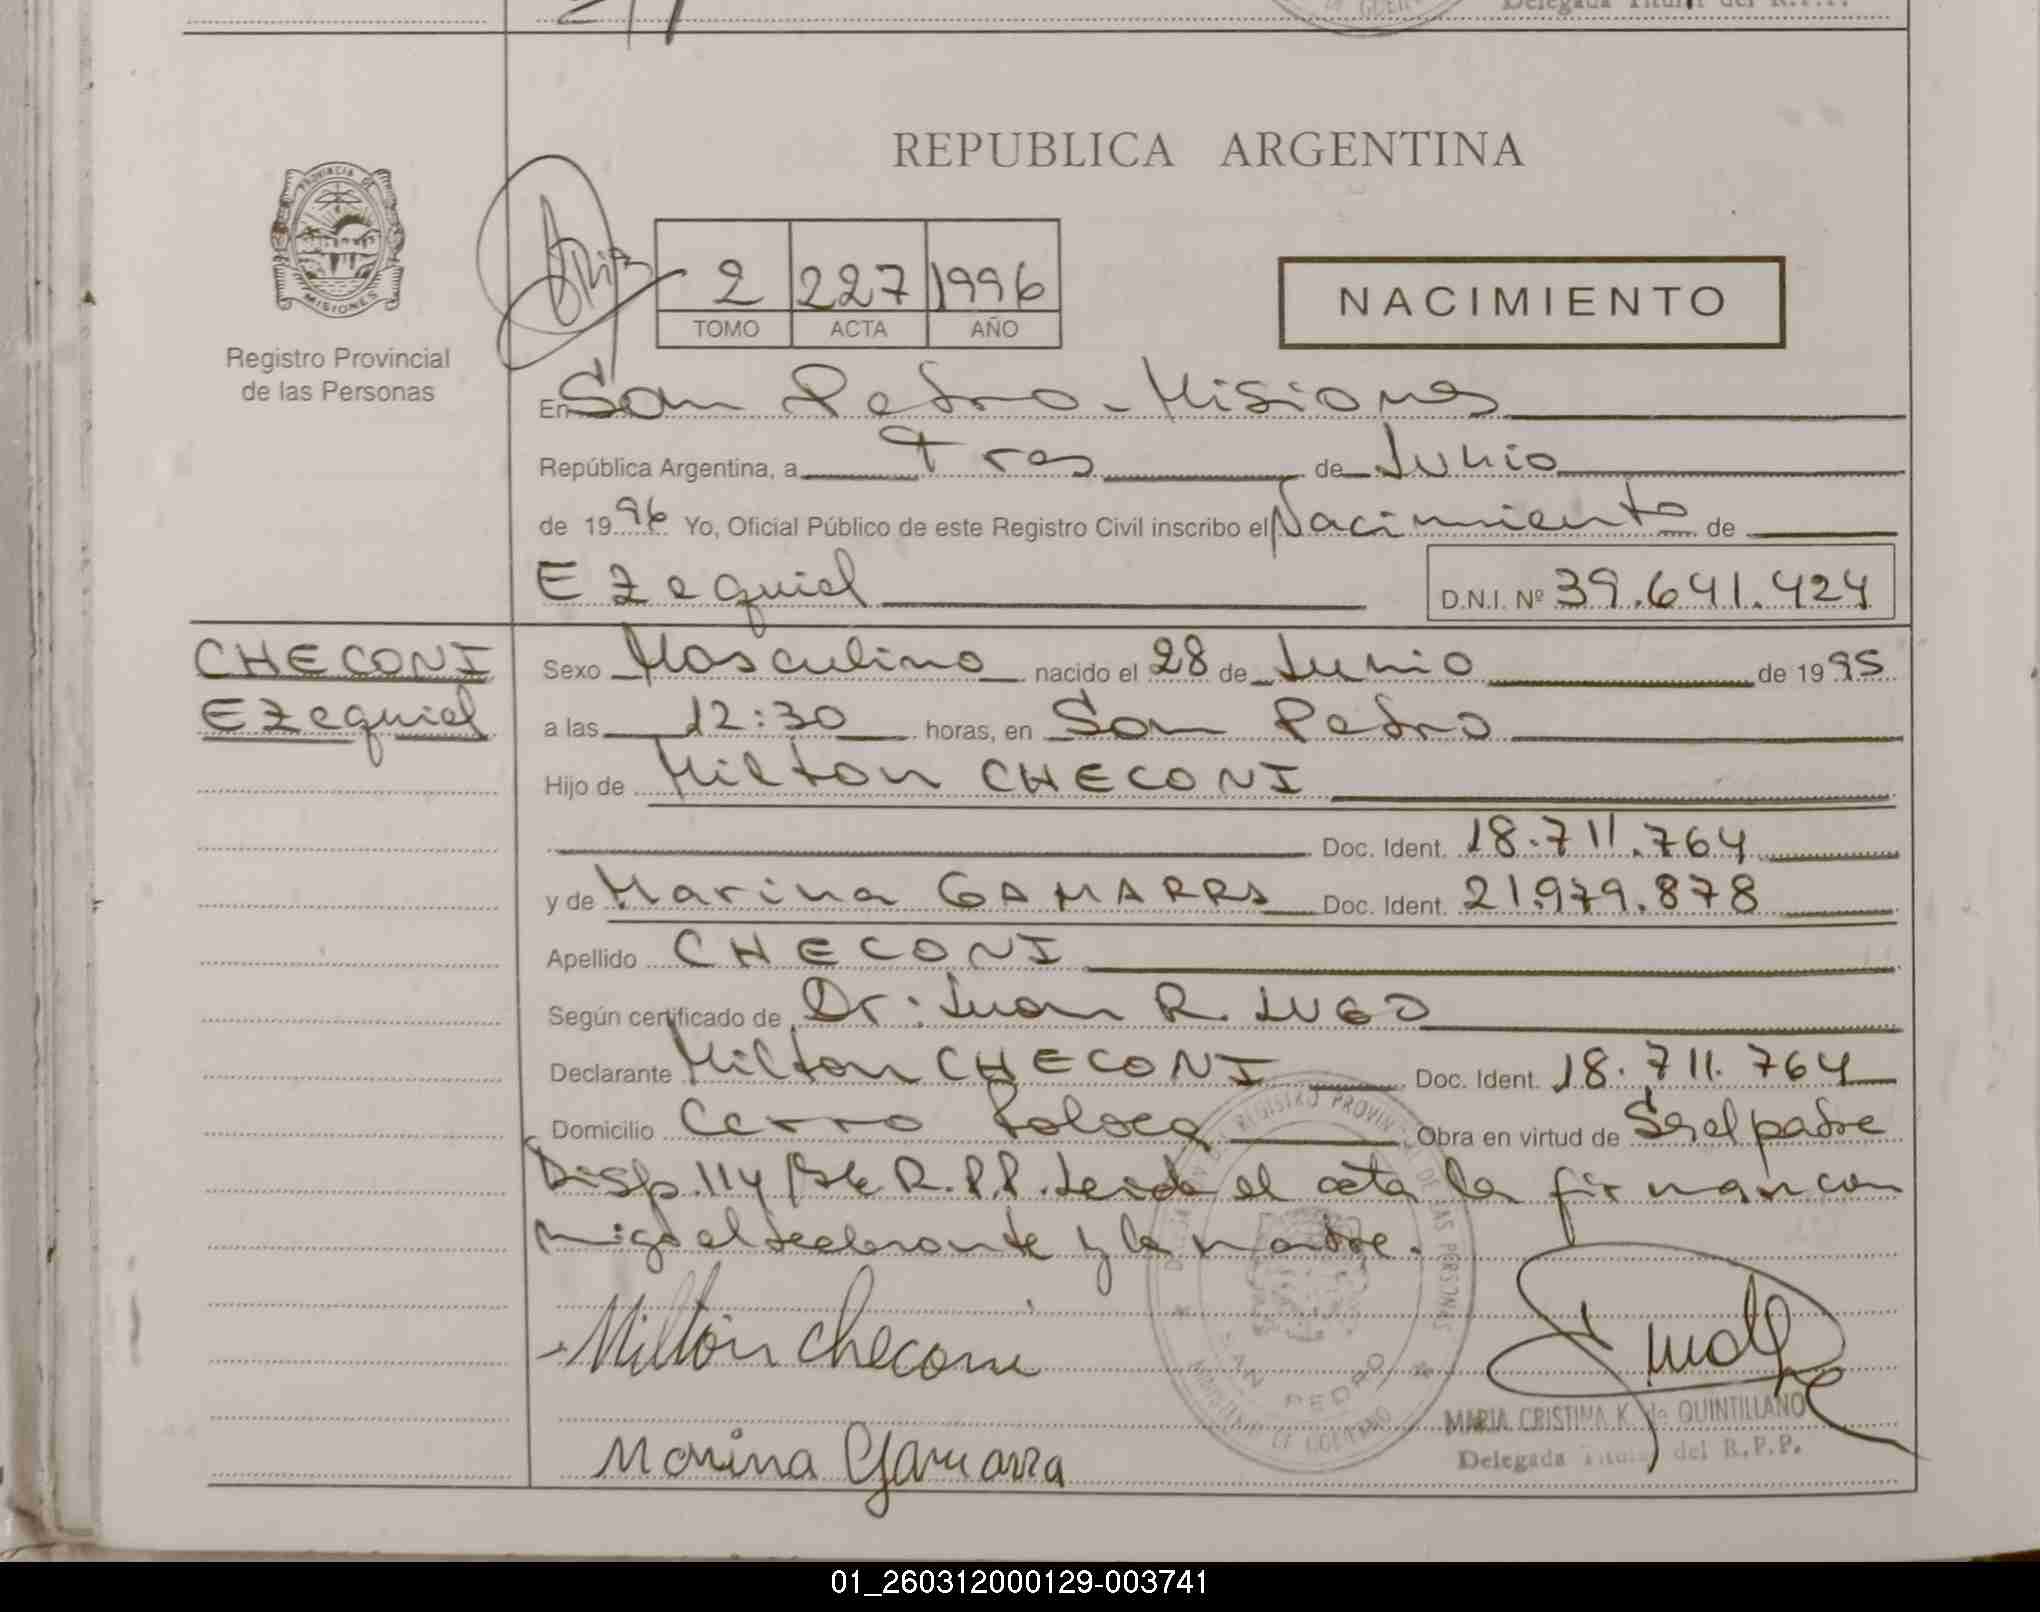 Delegada Titular del R.P.P.
REPUBLICA ARGENTINA
PROVINCIA DE
MISIONES
Registro Provincial
de las Personas
2 227 1996
TOMO ACTA AÑO
NACIMIENTO
En San Pedro - Misiones
República Argentina, a Tres de Junio
de 1996 Yo, Oficial Público de este Registro Civil inscribo el Nacimiento de
Ezequiel D.N.I. Nº 39.641.424
CHECONI
Ezequiel
Sexo Masculino nacido el 28 de Junio de 1995
a las 12:30 horas, en San Pedro
Hijo de Milton CHECONI
Doc. Ident. 18.711.764
y de Marina GAMARRA Doc. Ident. 21.979.878
Apellido CHECONI
Según certificado de Dr. Juan R. LUGO
Declarante Milton CHECONI Doc. Ident. 18.711.764
Domicilio Cerro Obra en virtud de Ser el padre
Disp. 114 R.P.P. Leida el acta la firman con
migo el declarante y la madre.
Milton Checoni
SAN PEDRO
MARIA CRISTINA K. de QUINTILLANO
Delegada Titular del R.P.P.
Marina Gamarra
01_260312000129-003741